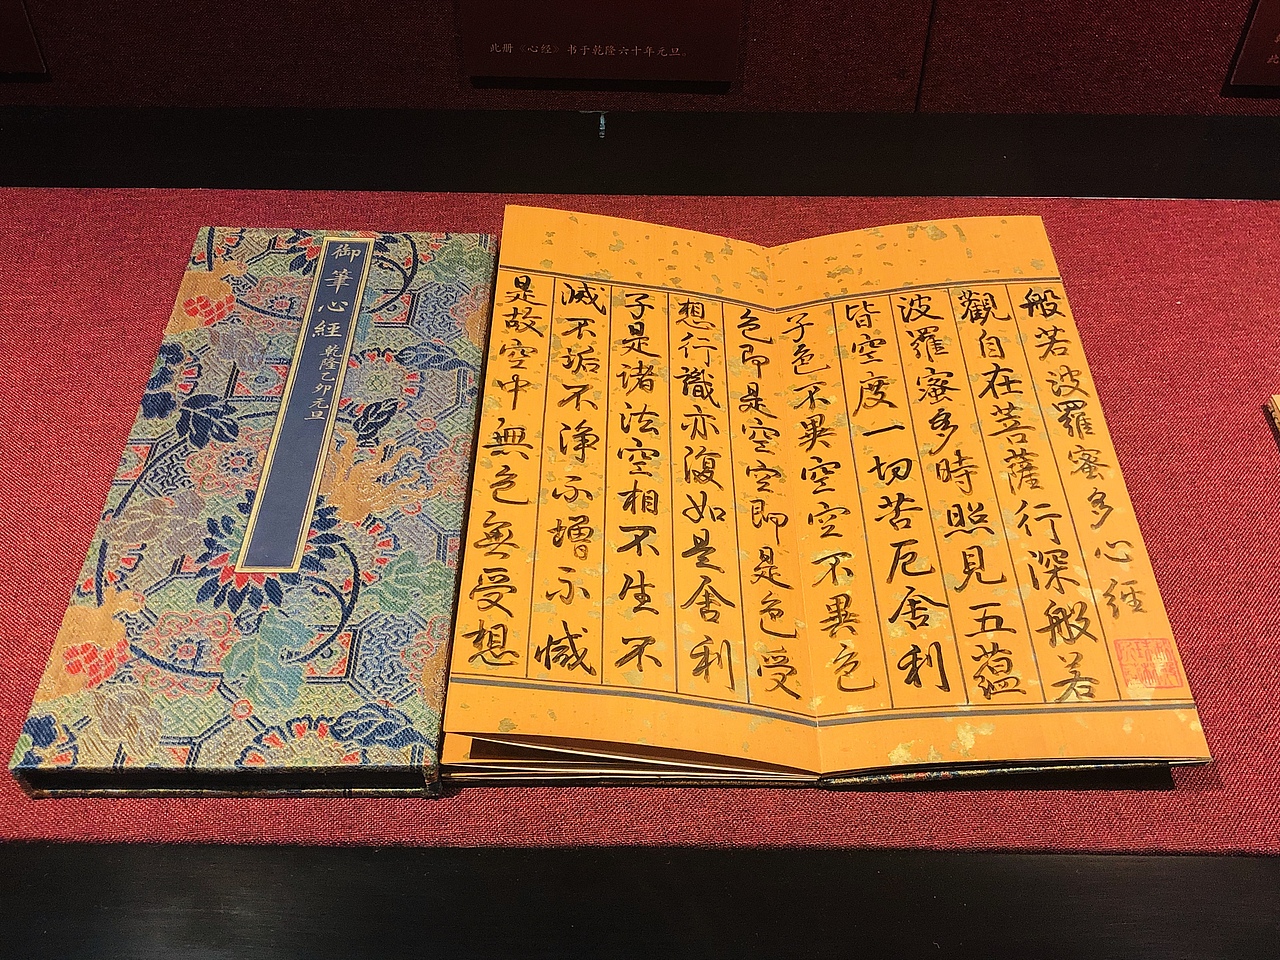 此册《心经》书于乾隆六十年元旦。
御筆心經 乾隆乙卯元旦
般若波羅蜜多心經
觀自在菩薩行深般若
波羅蜜多時照見五蘊
皆空度一切苦厄舍利
子色不異空空不異色
色即是空空即是色受
想行識亦復如是舍利
子是諸法空相不生不
滅不垢不淨不增不減
是故空中無色無受想